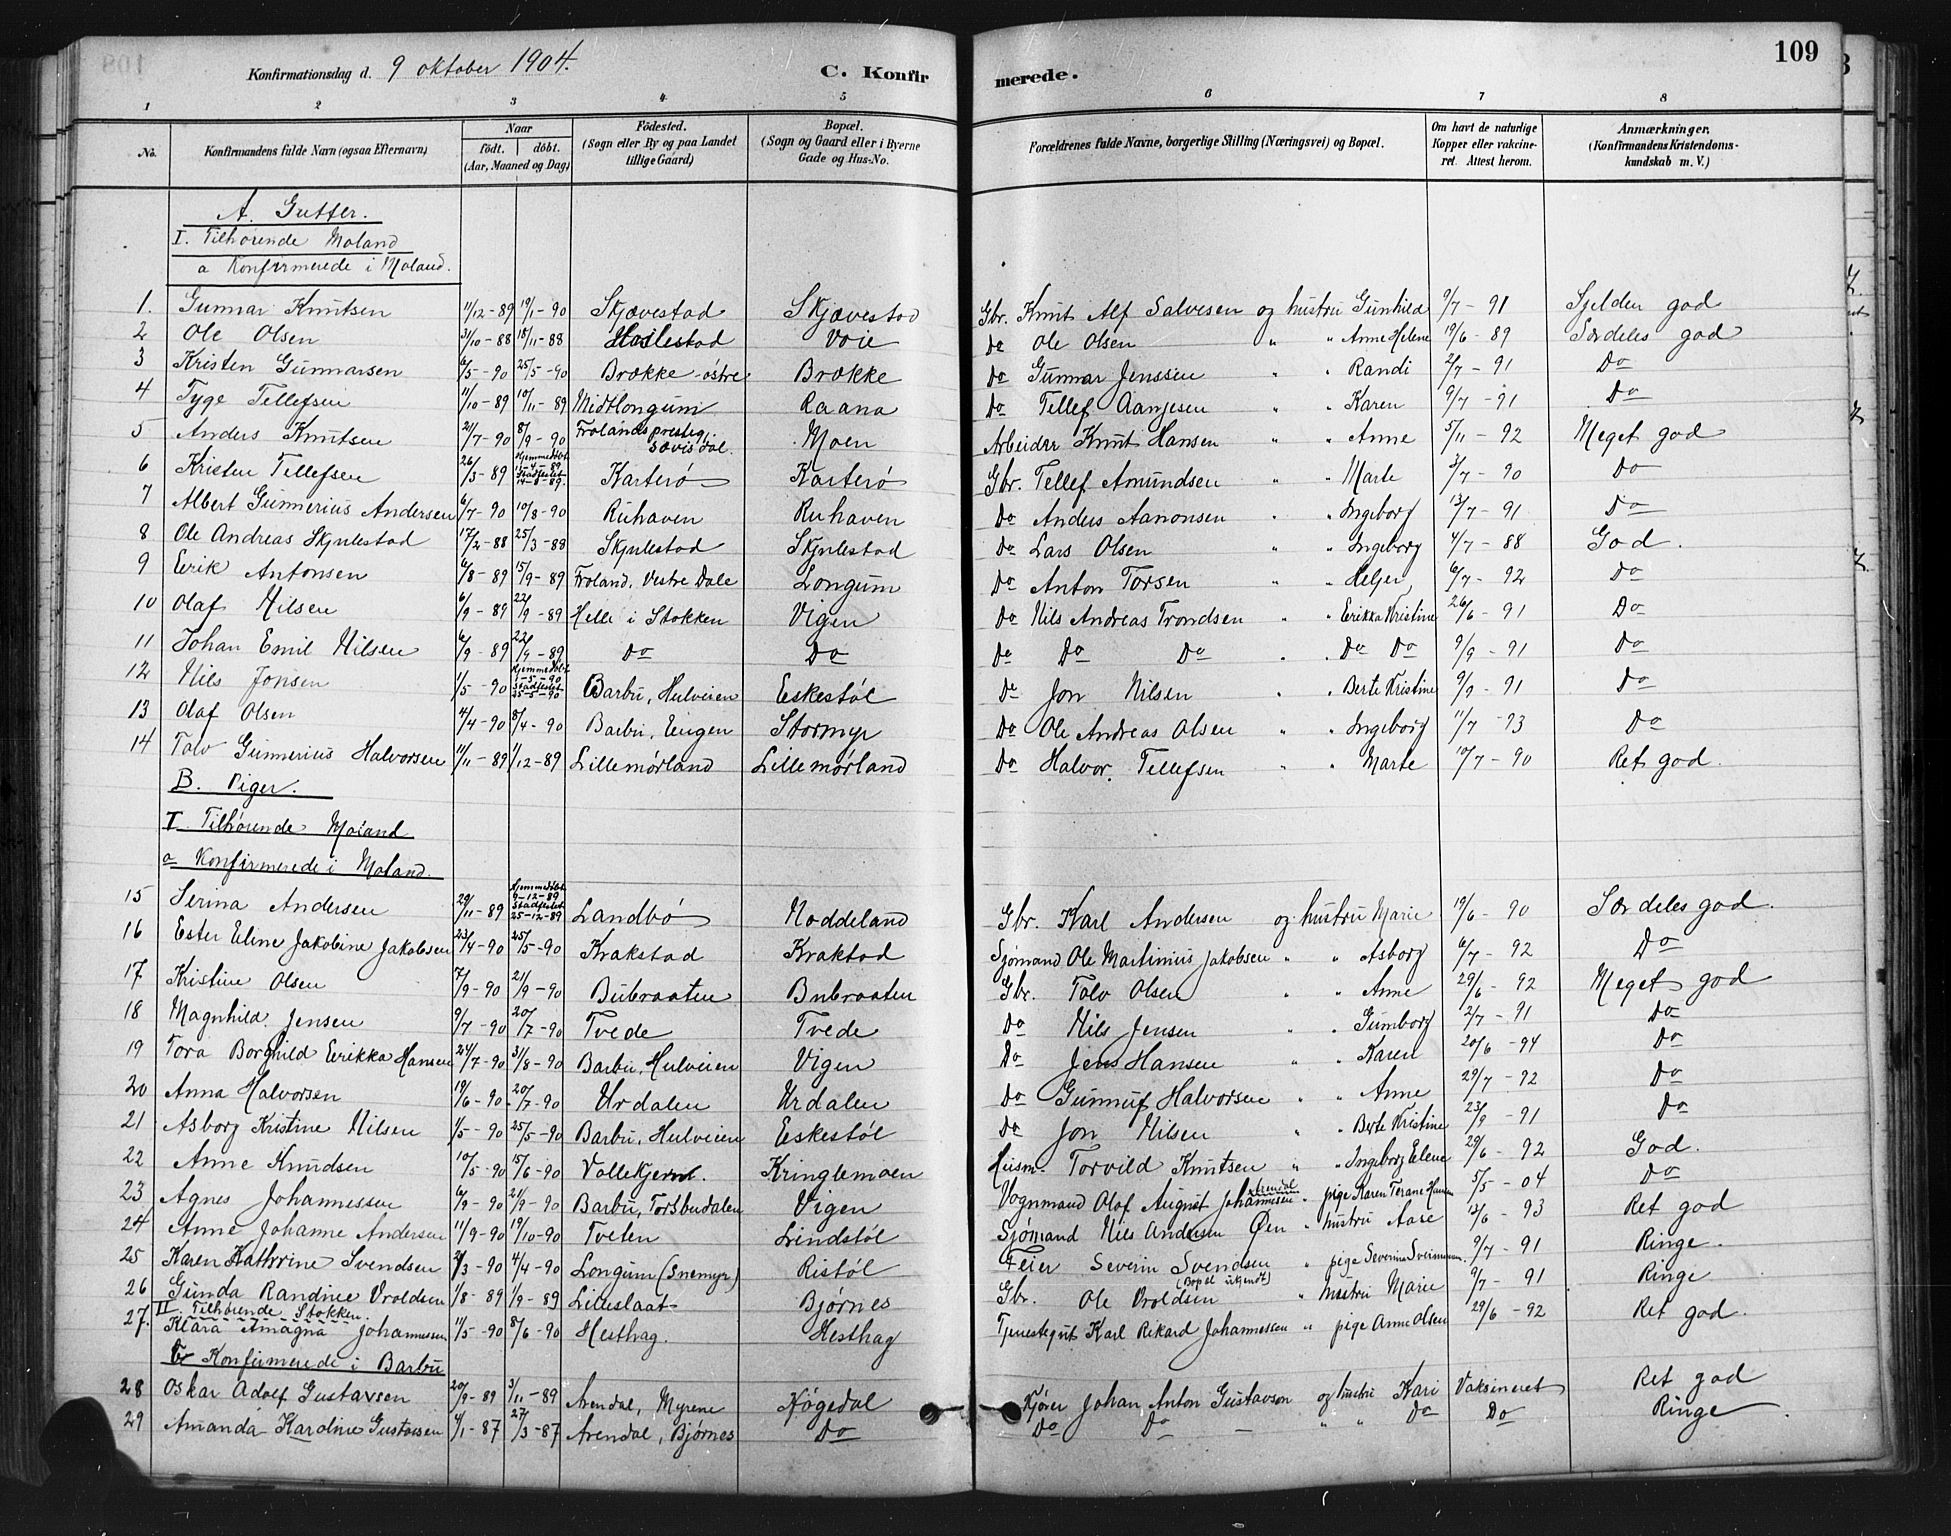 109
Konfirmationsdag d. 9 oktober 1904.
C. Konfirmerede.
1 2 3 4 5 6 7 8
No. Konfirmandens fulde Navn (ogsaa Efternavn) Naar födt. döbt. (Aar, Maaned og Dag) Födested. (Sogn eller By og paa Landet tillige Gaard) Bopæl. (Sogn og Gaard eller i Byerne Gade og Hus-No. Forældrenes fulde Navne, borgerlige Stilling (Næringsvei) og Bopæl. Om havt de naturlige Kopper eller vakcineret. Attest herom. Anmærkninger. (Konfirmandens Kristendomskundskab m. V.)
A. Gutter.
I. Tilhørende Moland
a Konfirmerede i Moland.
1. Gunnar Knutsen 11/12-89 19/1-90 Skjævestad Skjævestad Gbr. Knut Alf Salvesen og hustru Gunhild 9/7-91 Sjelden god
2 Ole Olsen 31/10-88 18/11-88 Haslestad Voie Do Ole Olsen " " Anne Helene 19/6-89 Særdeles god
3 Kristen Gunnarsen 6/5-90 25/5-90 Brække-østre Brække Do Gunnar Jenssen " " Randi 2/7-91 Do
4 Tyge Tellefsen 11/10-89 10/11-89 Midtlongum Raana Do Tellef Aanjesen " " Karen 9/7-91 Do
5 Anders Knutsen 21/7-90 8/9-90 Frolands prestegj. Søvisdal. Moen Arbeider Knut Hansen " " Anne 5/11-92 Meget god
6 Kristen Tellefsen 26/3-89 Hjemmedöbt Stadfestet 14-8-89. Karterø Karterø Gbr. Tellef Amundsen " " Marte 3/7-90 Do
7 Albert Gunnerius Andersen 6/7-90 10/8-90 Ruhaven Ruhaven Do Anders Aanonsen " " Ingeborg 13/7-91 Do
8 Ole Andreas Skjulestad 17/2-88 25/3-88 Skjulestad Skjulestad Do Lars Olsen " " Ingeborg 4/7-88 God.
9 Eerik Antonsen 6/8-89 15/9-89 Froland, Vestre Dale Longum Do Anton Torsen " " Helje 6/7-92 Do
10 Olaf Nilsen 6/9-89 22/9-89 Helle i Stokken Vigen Do Nils Andreas Trondsen " " Eerikka Kristine 26/6-91 Do
11 Johan Emil Nilsen 6/9-89 22/9-89 Do Do Do Do Do " " Do Do 9/9-91 Do
12 Nils Jonsen 1/5-90 Hjemmedöbt 1-5-90 Stadfestet 25-5-90 Barbu, Hulveien Eskestøl Do Jon Nilsen " Berte Kristine 9/9-91 Do
13 Olaf Olsen 4/4-90 8/4-90 Barbu, Eengen Stormyr Do Ole Andreas Olsen " " Ingeborg 11/7-93 Do
14 Talv Gunnerius Halvorsen 11/11-89 1/12-89 Lillemørland Lillemørland Do Halvor Tellefsen " " Marte 10/7-90 Ret god.
B. Piger.
I Tilhørende Moland
a Konfirmerede i Moland.
15 Serina Andersen 29/11-89 Hjemmedöbt 9-12-89 Stadfestet 25-12-89 Landbø Noddeland Gbr. Karl Andersen og hustru Marie 19/6-90 Særdeles god.
16 Ester Eline Jakobine Jakobsen 23/4-90 25/5-90 Krakstad Kraktad Sjømand Ole Martinius Jakobsen " " Asborg 6/7-92 Do
17 Kristine Olsen 7/9-90 21/9-90 Bubraaten Bubraaten Gbr. Talv Olsen " " Anne 29/6-92 Meget god
18 Magnhild Jensen 9/7-90 20/7-90 Tvede Tvede Do Nils Jensen " " Gumborg 2/7-91 Do
19 Tora Borghild Eerikka Hansen 24/7-90 31/8-90 Barbu, Hulveien Vigen Do Jens Hansen " " Karen 20/6-94 Do
20 Anna Halvorsen 19/6-90 20/7-90 Urdalen Urdalen Do Gunnuf Halvorsen " " Anne 29/7-92 Do
21 Asborg Kristine Nilsen 1/5-90 25/5-90 Barbu, Hulveien Eskestøl Do Jon Nilsen " " Berte Kristine 23/9-91 Do
22 Anne Knudsen 10/5-90 15/6-90 Vollekjern. Kringlemoen Husm. Torvild Knutsen " " Ingeborg Eelene 29/6-92 God.
23 Agnes Johannessen 6/9-90 21/9-90 Barbu, Torsbudalen Vigen Vognmand Olaf August Johannesen Arendal " pige Karen Terane Hansen 5/5-04 Do
24 Anne Johanne Andersen 11/9-90 19/10-90 Tveten Lindstøl Sjømand Nils Andersen Øen " hustru Aase 12/6-93 Ret god
25 Karen Kathrine Svendsen 2/3-90 4/4-90 Longum (Snemyr) Ristøl Feier Severin Svendsen (Bopæl ukendt) " pige Severine 9/7-91 Ringe.
26 Gunda Randine Vroldsen 1/8-89 1/9-89 Lilleslaat Bjørnes Gbr. Ole Vroldsen " hustru Marie 9/7-91 Ringe
II. Tilhørende Stokken.
27. Klara Amagna Johannessen 11/5-90 8/6-90 Hesthag. Hesthag Tjenestegut Karl Rikard Johannessen " pige Anne Olsen 29/6-92 Ret god.
Konfirmerede i Barbu
28 Oskar Adolf Gustavsen 20/9-89 3/11-89 Arendal, Myrene Høgedal Kjører Johan Anton Gustavson og hustru Kari Vaksineret Ret god
29 Amanda Karoline Gustavsen 4/1-87 27/3-87 Arendal, Bjørnes Do Do Do — " " Do Do Ringe.